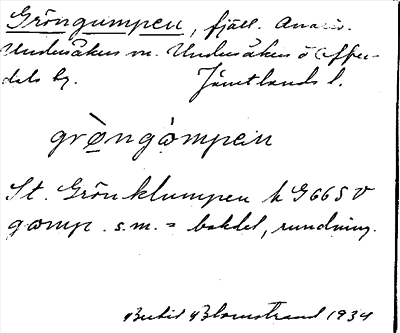 Gröngumpen, fjäll. Anaris.
Undersåkers sn. Undersåkers o Offer-
dals tg. Jämtlands l.
grø̀ngòmpen
St. Grönklumpen k G66SV
gomp. s.m. = bakdel, rundning.
Bertil Blomstrand 1934